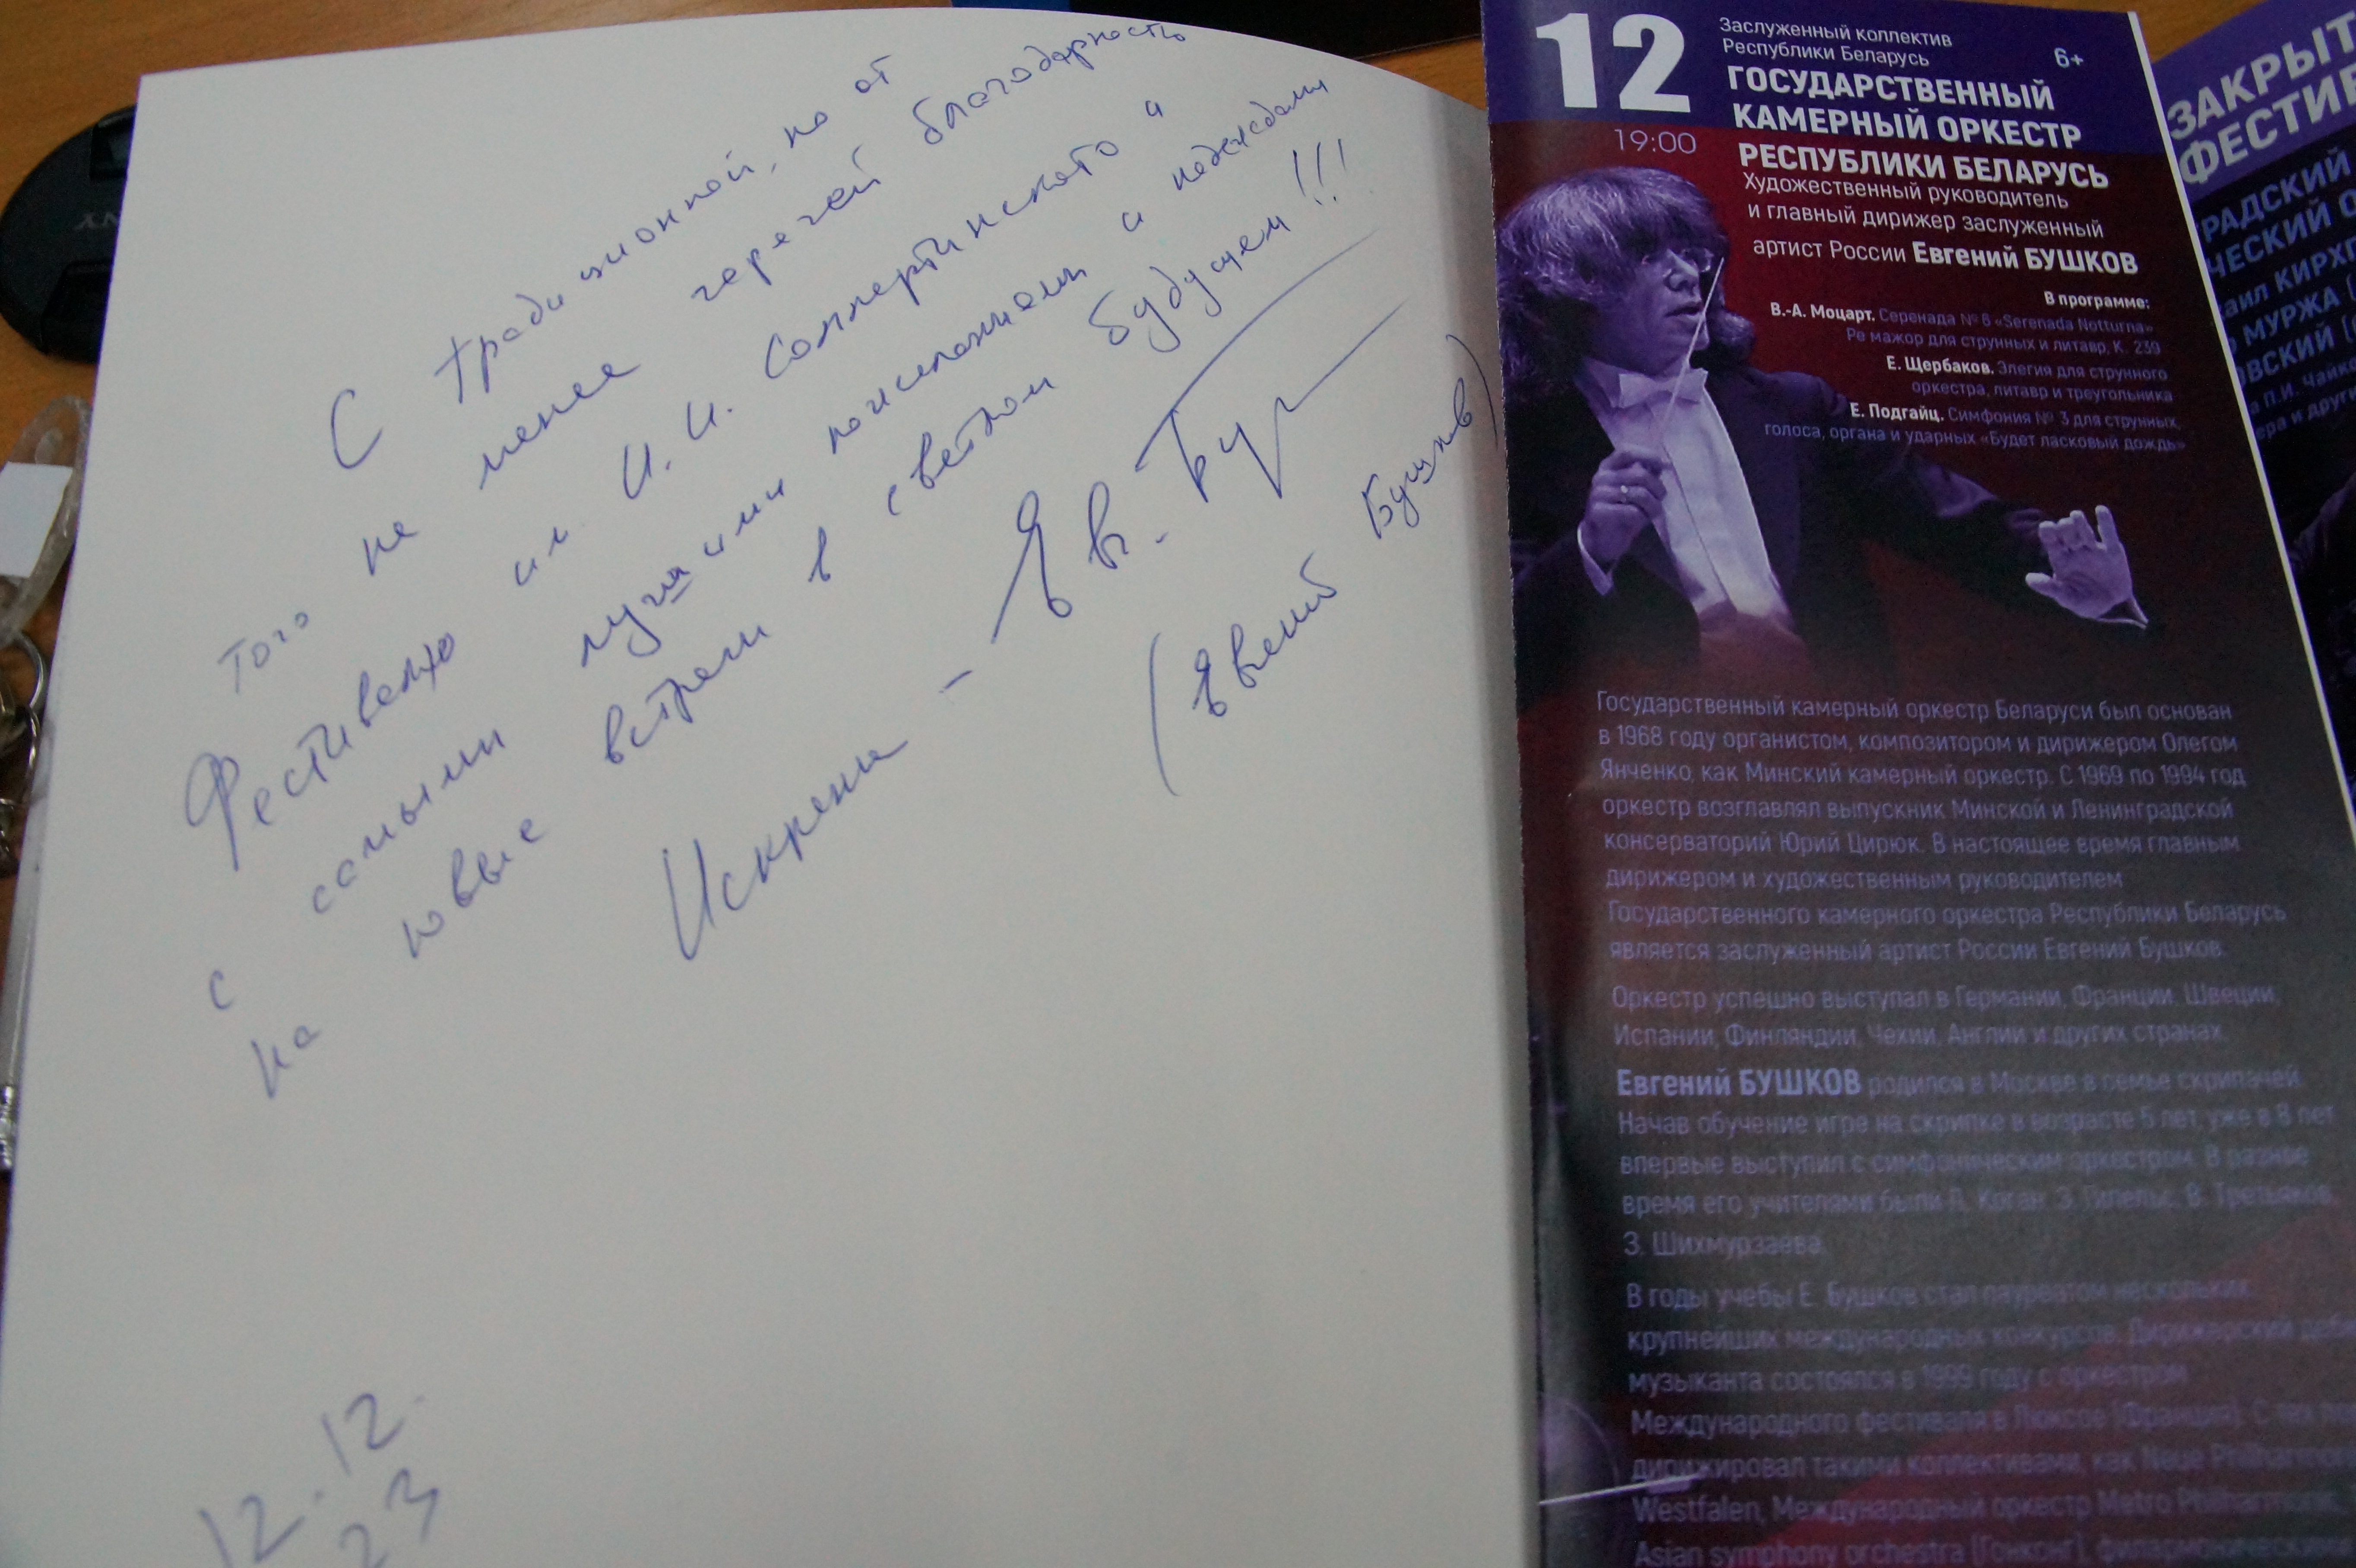 С традиционной, но от
того не менее горячей благодарностью
Фестивалю им. И. И. Соллертинского и
с самыми лучшими пожеланиями и надеждами
на новые встречи в светлом будущем!!!
Искренне – Евг. Буш
(Евгений Бушков)
12.12.
23
12
19:00
Заслуженный коллектив
Республики Беларусь
6+
ГОСУДАРСТВЕННЫЙ
КАМЕРНЫЙ ОРКЕСТР
РЕСПУБЛИКИ БЕЛАРУСЬ
Художественный руководитель
и главный дирижер заслуженный
артист России Евгений БУШКОВ
В программе:
В.-А. Моцарт. Серенада № 6 «Serenada Notturna»
Ре мажор для струнных и литавр, К. 239
Е. Щербаков. Элегия для струнного
оркестра, литавр и треугольника
Е. Подгайц. Симфония № 3 для струнных,
голоса, органа и ударных «Будет ласковый дождь»
Государственный камерный оркестр Беларуси был основан
в 1968 году органистом, композитором и дирижером Олегом
Янченко, как Минский камерный оркестр. С 1969 по 1994 год
оркестр возглавлял выпускник Минской и Ленинградской
консерваторий Юрий Цирюк. В настоящее время главным
дирижером и художественным руководителем
Государственного камерного оркестра Республики Беларусь
является заслуженный артист России Евгений Бушков.
Оркестр успешно выступал в Германии, Франции, Швеции,
Испании, Финляндии, Чехии, Англии и других странах.
Евгений БУШКОВ родился в Москве в семье скрипачей.
Начав обучение игре на скрипке в возрасте 5 лет, уже в 8 лет
впервые выступил с симфоническим оркестром. В разное
время его учителями были Л. Коган, З. Гилельс, В. Третьяков,
З. Шихмурзаева.
В годы учебы Е. Бушков стал лауреатом нескольких
крупнейших международных конкурсов. Дирижерский
музыканта состоялся в 1999 году с оркестром
Международного фестиваля в (Франция). С тех
дирижировал такими коллективами, как Neue Philharmon
Westfalen, Международный оркестр Metro Philharmonic,
Asian symphony orchestra (Гонконг),
ЗАКРЫТ
ФЕСТИВ
РАДСКИЙ
ЧЕСКИЙ О
аил КИРХГ
МУРЖА (
ОВСКИЙ (
П.И. Чайко
ера и друг